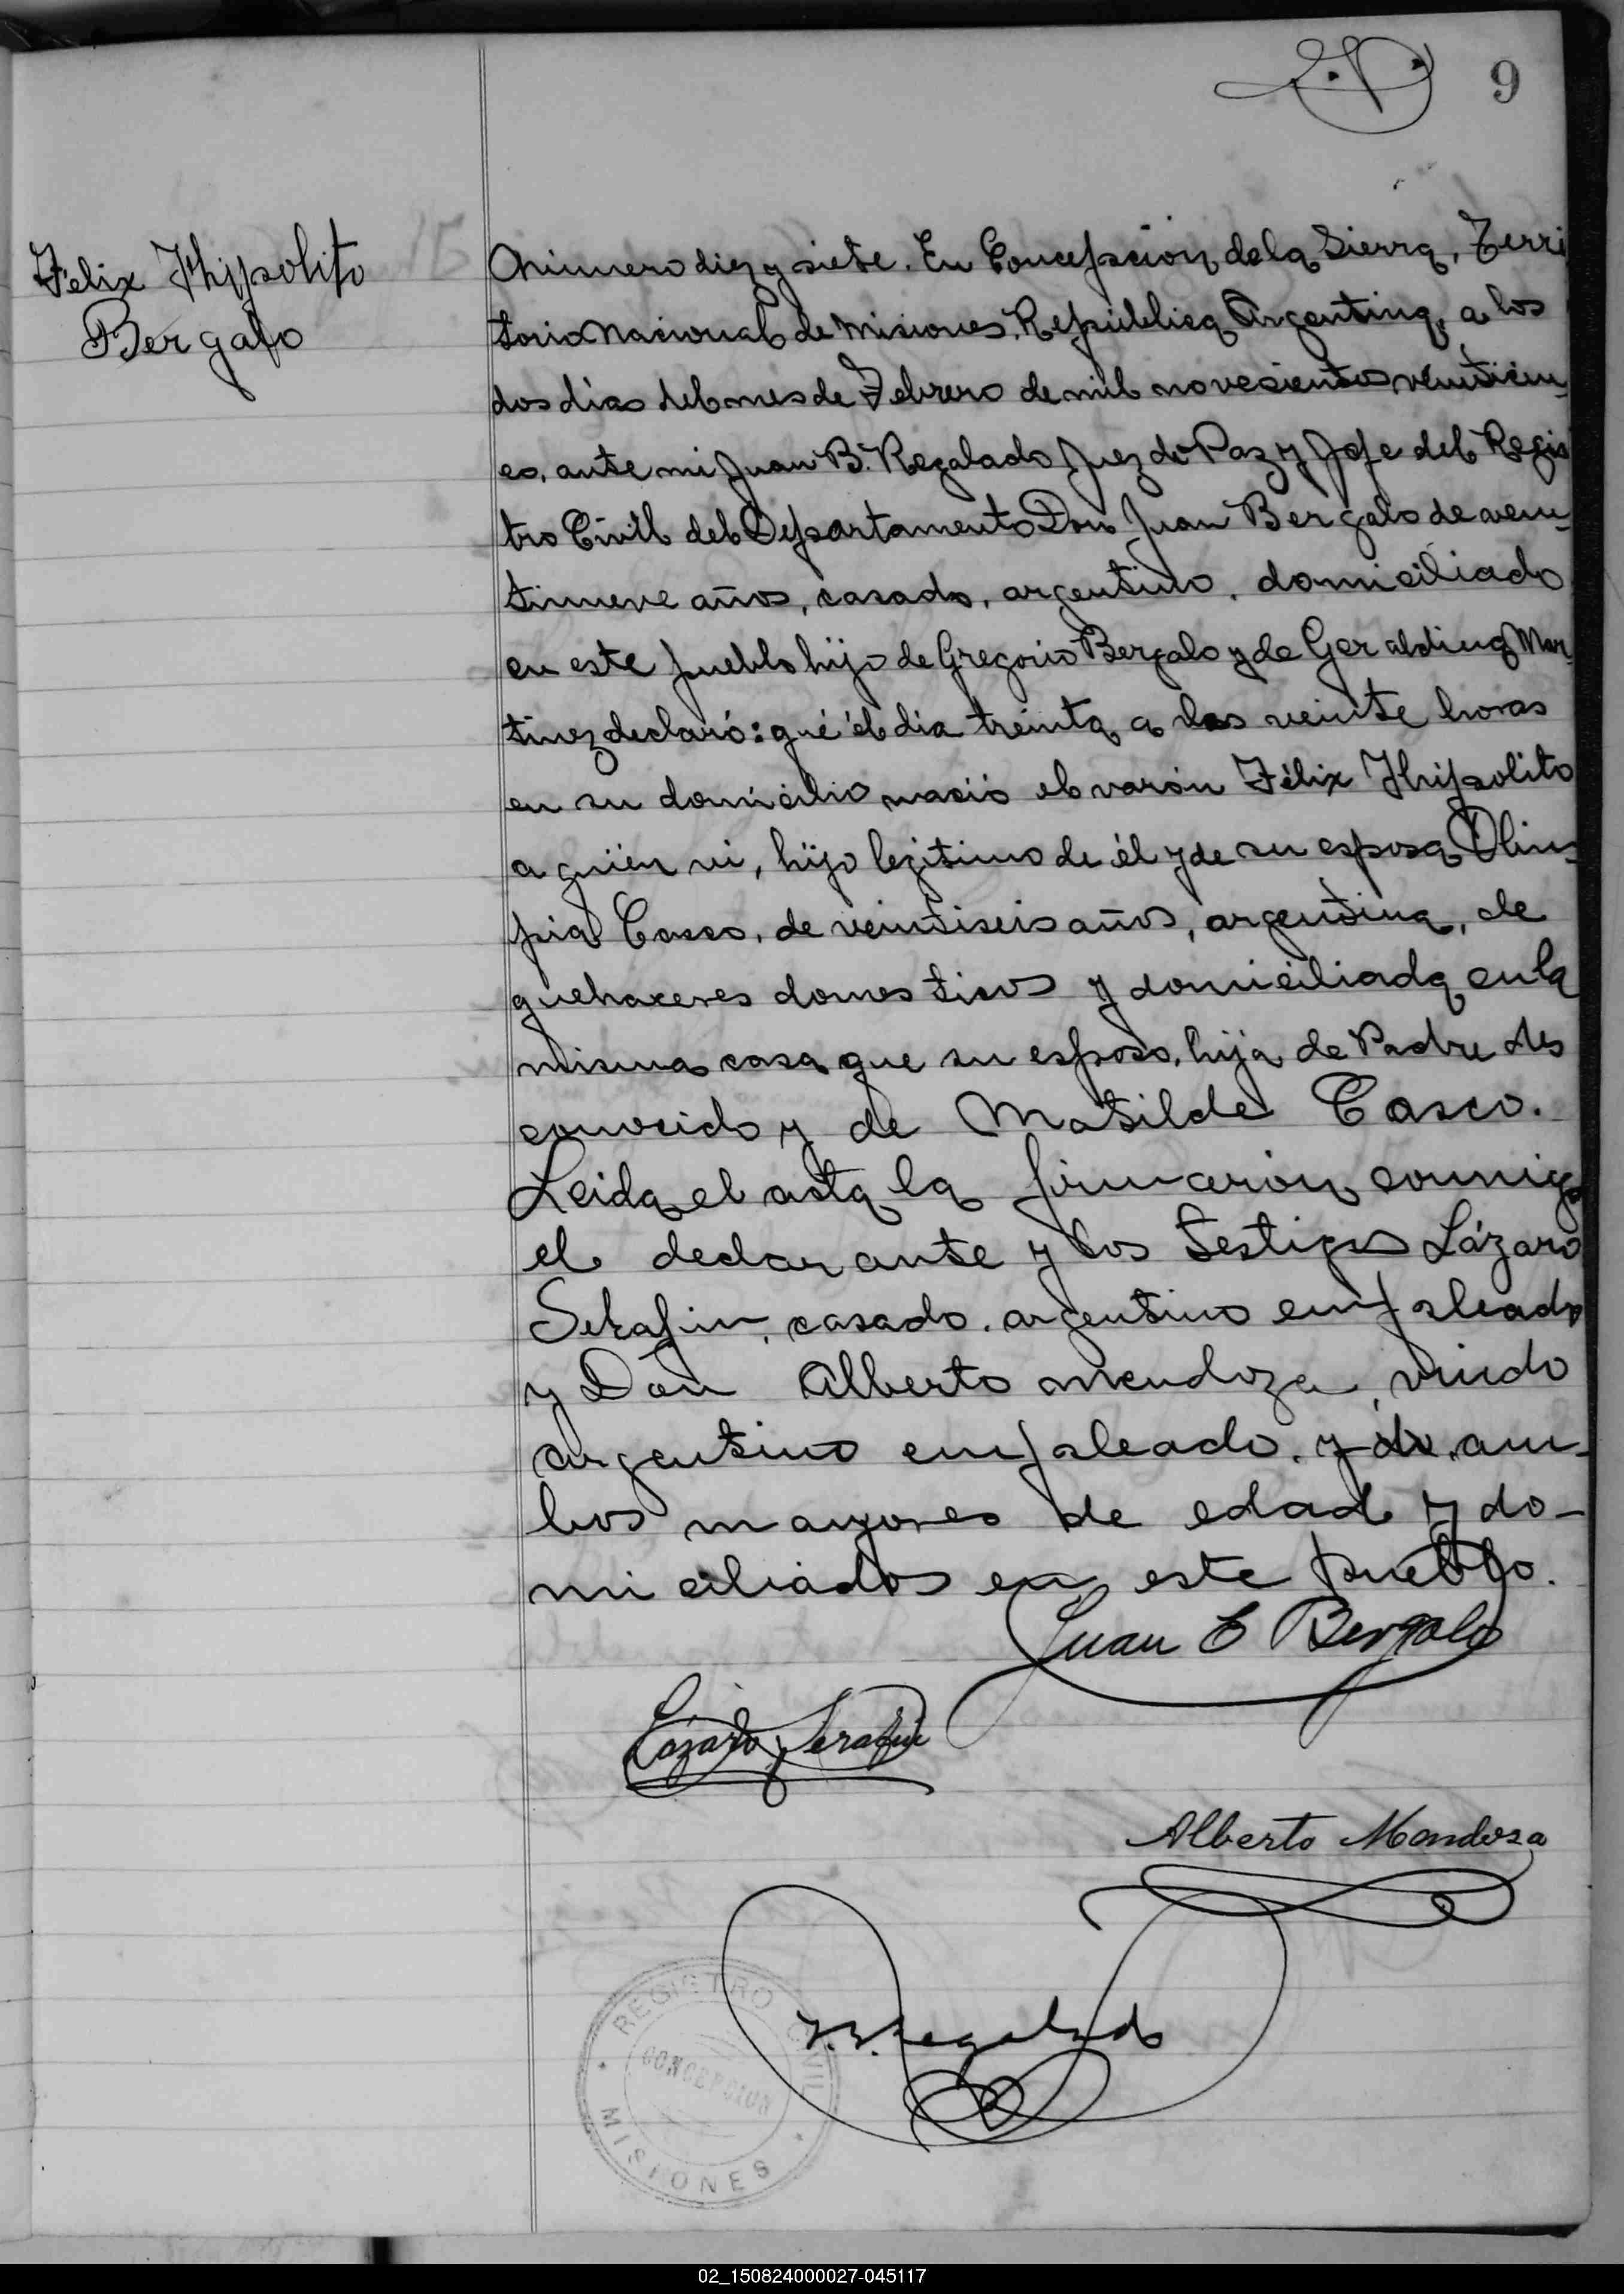 9
Félix Ihipolito
Bergalo
Número diez y siete. En Concepcion de la Sierra, Terri
torio Nacional de Misiones. República Argentina, a los
dos días del mes de Febrero de mil novecientos veinticin-
co, ante mi Juan B. Regalado Juez de Paz y Jefe del Regis
tro Civil del Departamento Don Juan Bergalo de vein-
tinueve años, casado, argentino, domiciliado
en este pueblo hijo de Gregorio Bergalo y de Geraldina Mar
tinez declaró: qué él dia treinta a las veinte horas
en su domicilio nació el varón Félix Ihipolito
a quién vi, hijo legitimo de él y de su esposa Olim-
pia Casco, de veintiseis años, argentina, de
quehaceres domesticos y domiciliada en la
misma casa que su esposo, hija de Padre des
conocido y de Matilde Casco.
Leida el acta la firmaron conmigo
el declarante y los testigos Lázaro
Serafin, casado, argentino empleado
y Don Alberto Mendoza, viudo
argentino empleado, y do, am-
bos mayores de edad y do-
miciliados en este pueblo.
Juan E Bergalo
Lázaro Serafin
Alberto Mendoza
J. B. Regalado
REGISTRO CIVIL
CONCEPCION
MISIONES
02_150824000027-045117